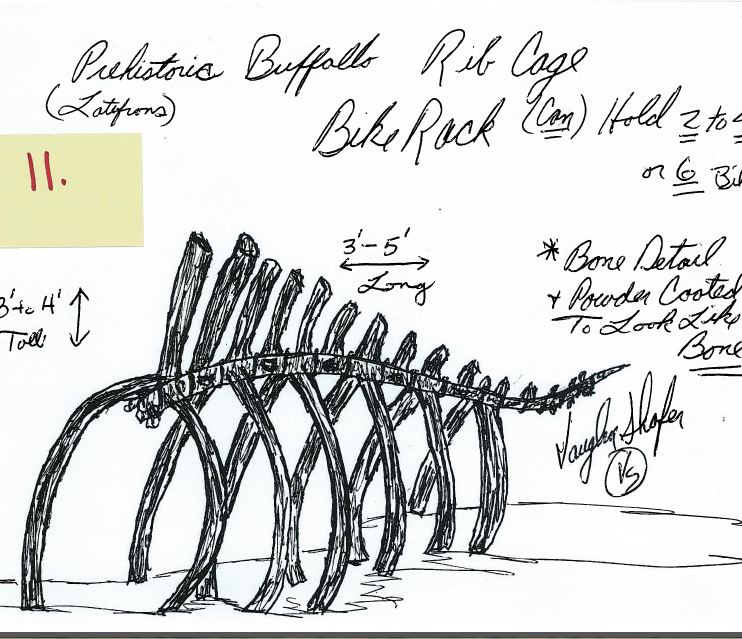 Prehistoric Buffallo Rib Cage
(Latifrons)
Bike Rack (Can) Hold 2 to 4
or 6 Bi
11.
3'-5'
Long
3' to 4'
Tall
* Bone Detail
+ Powder Coated
To Look Like
Bone
Vaughn Shafer
VS